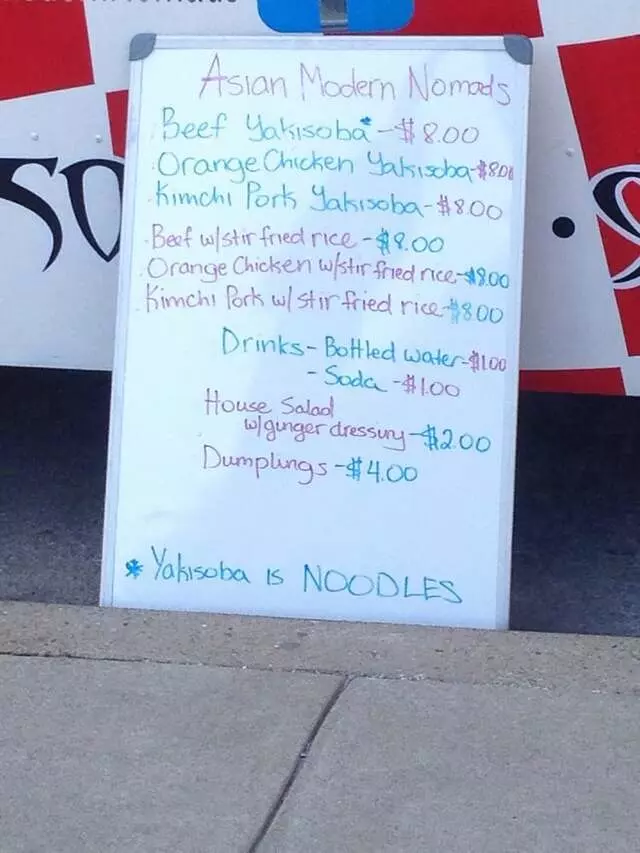 Asian Modern Nomads
Beef Yakisoba* - $8.00
Orange Chicken Yakisoba - $8.00
Kimchi Pork Yakisoba - $8.00
Beef w/stir fried rice - $8.00
Orange Chicken w/stir fried rice - $8.00
Kimchi Pork w/ stir fried rice - $8.00
Drinks - Bottled water - $1.00
- Soda - $1.00
House Salad
w/ginger dressing - $2.00
Dumplings - $4.00
* Yakisoba is NOODLES